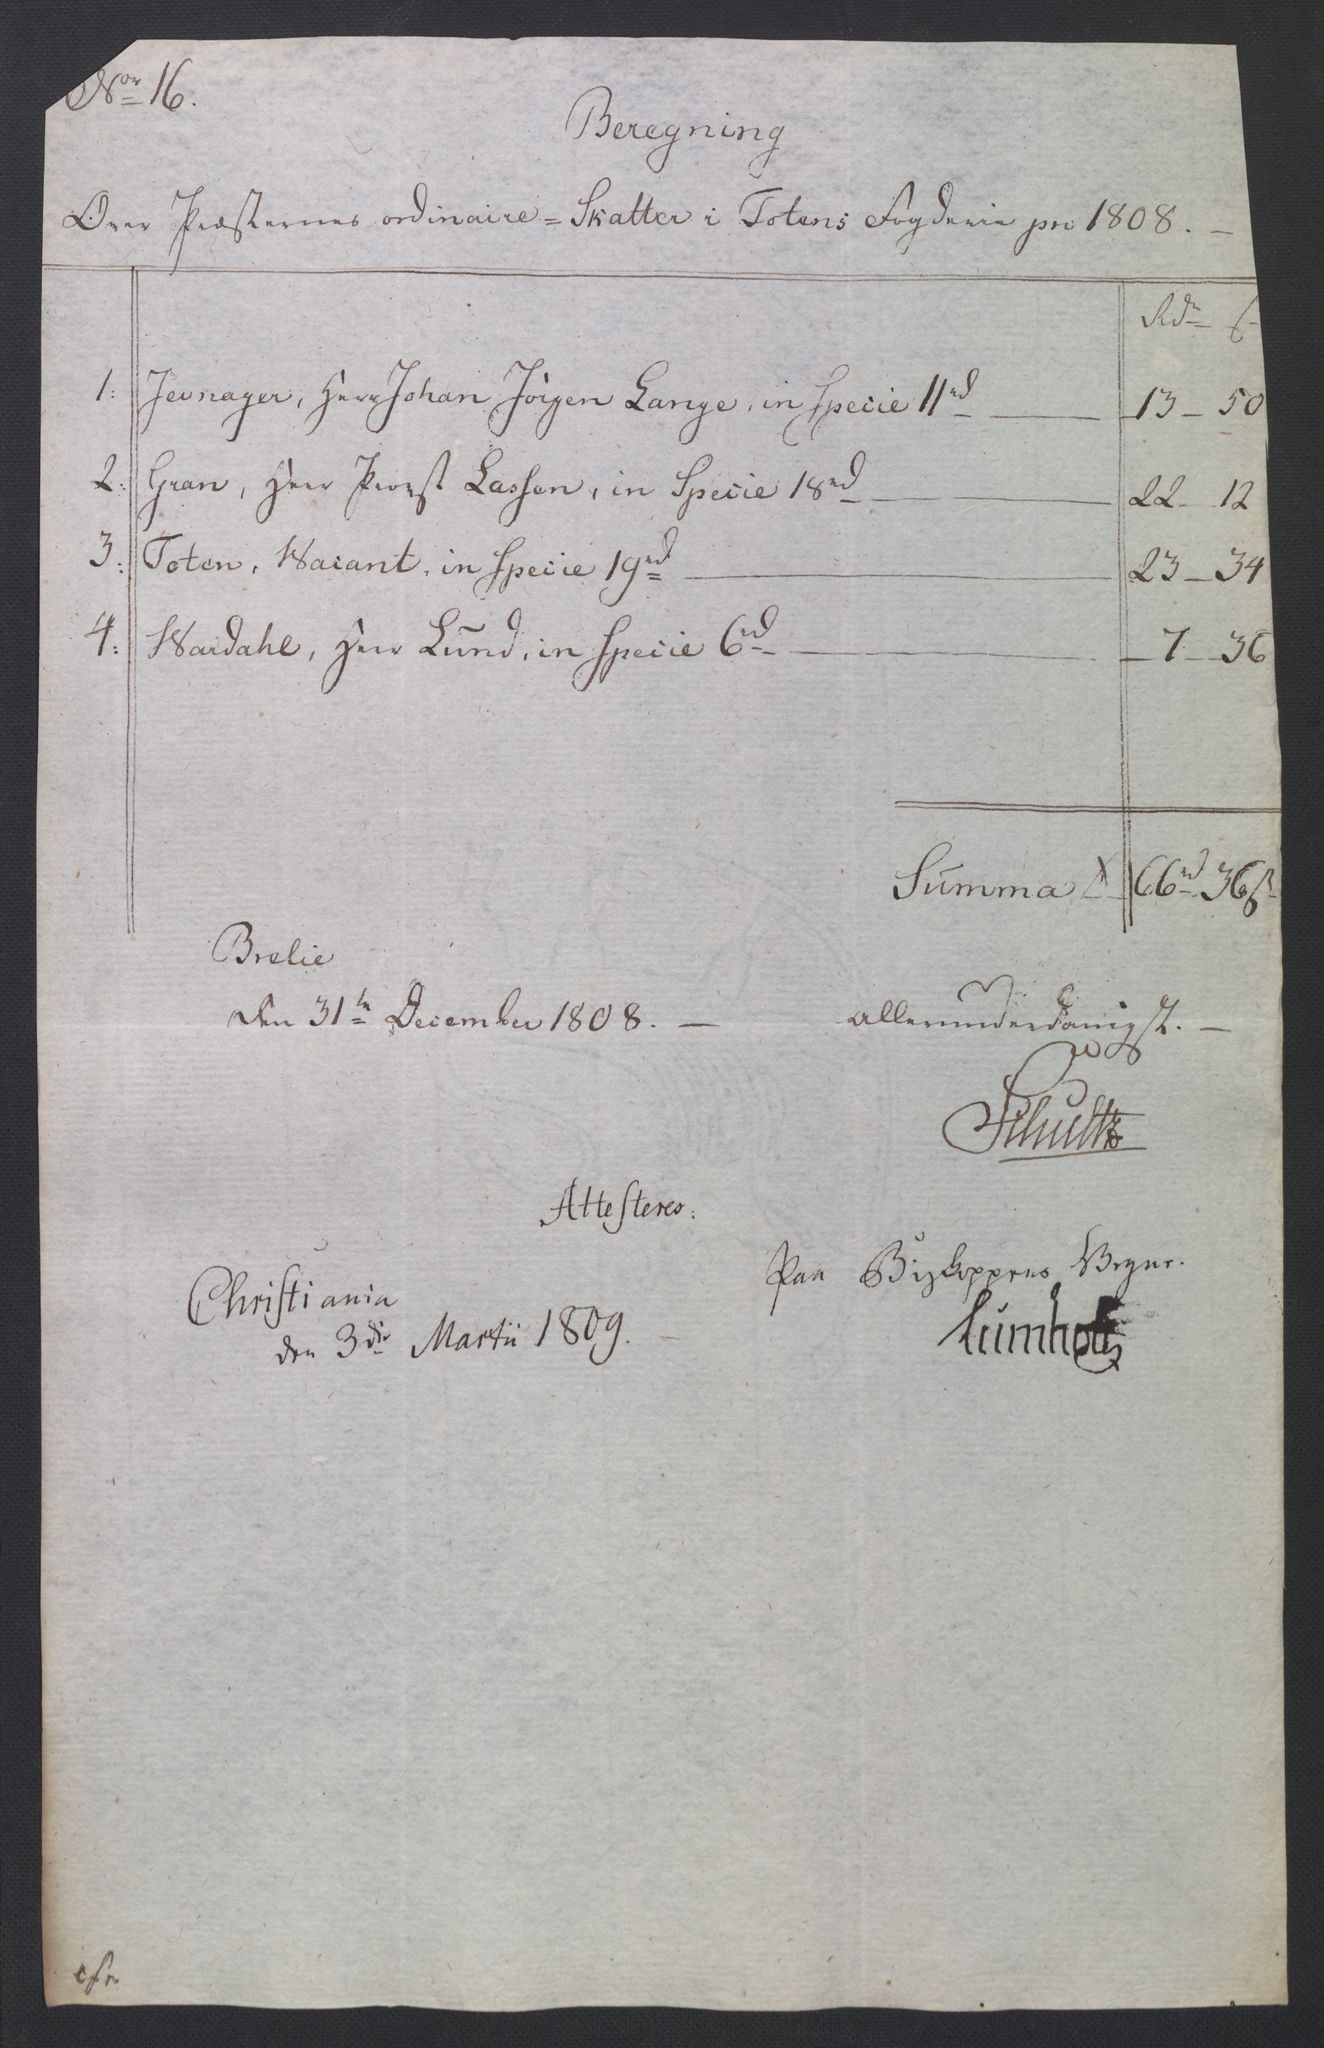 Nor 16.
Beregning
Over Præsternes ordinaire = Skatter i Totens Fogderie pro 1808. —
Rdr ß
1: Jevnager, Herr Johan Jörgen Lange, in Specie 11rd — 13 — 50
2: Gran, Herr Provst Lassen, in Specie 18rd — 22 — 12
3: Toten, Vacant, in Specie 19rd — 23 — 34
4: Wardahl, Herr Lund, in Specie 6rd — 7 — 36
Summa 66rd 36ß
Brelie
den 31te December 1808. — allerunderdanigst. —
Schultz
Attesteres.
Christiania
den 3die Martii 1809.
Paa Biskoppens Vegne.
Lumholtz
cfr